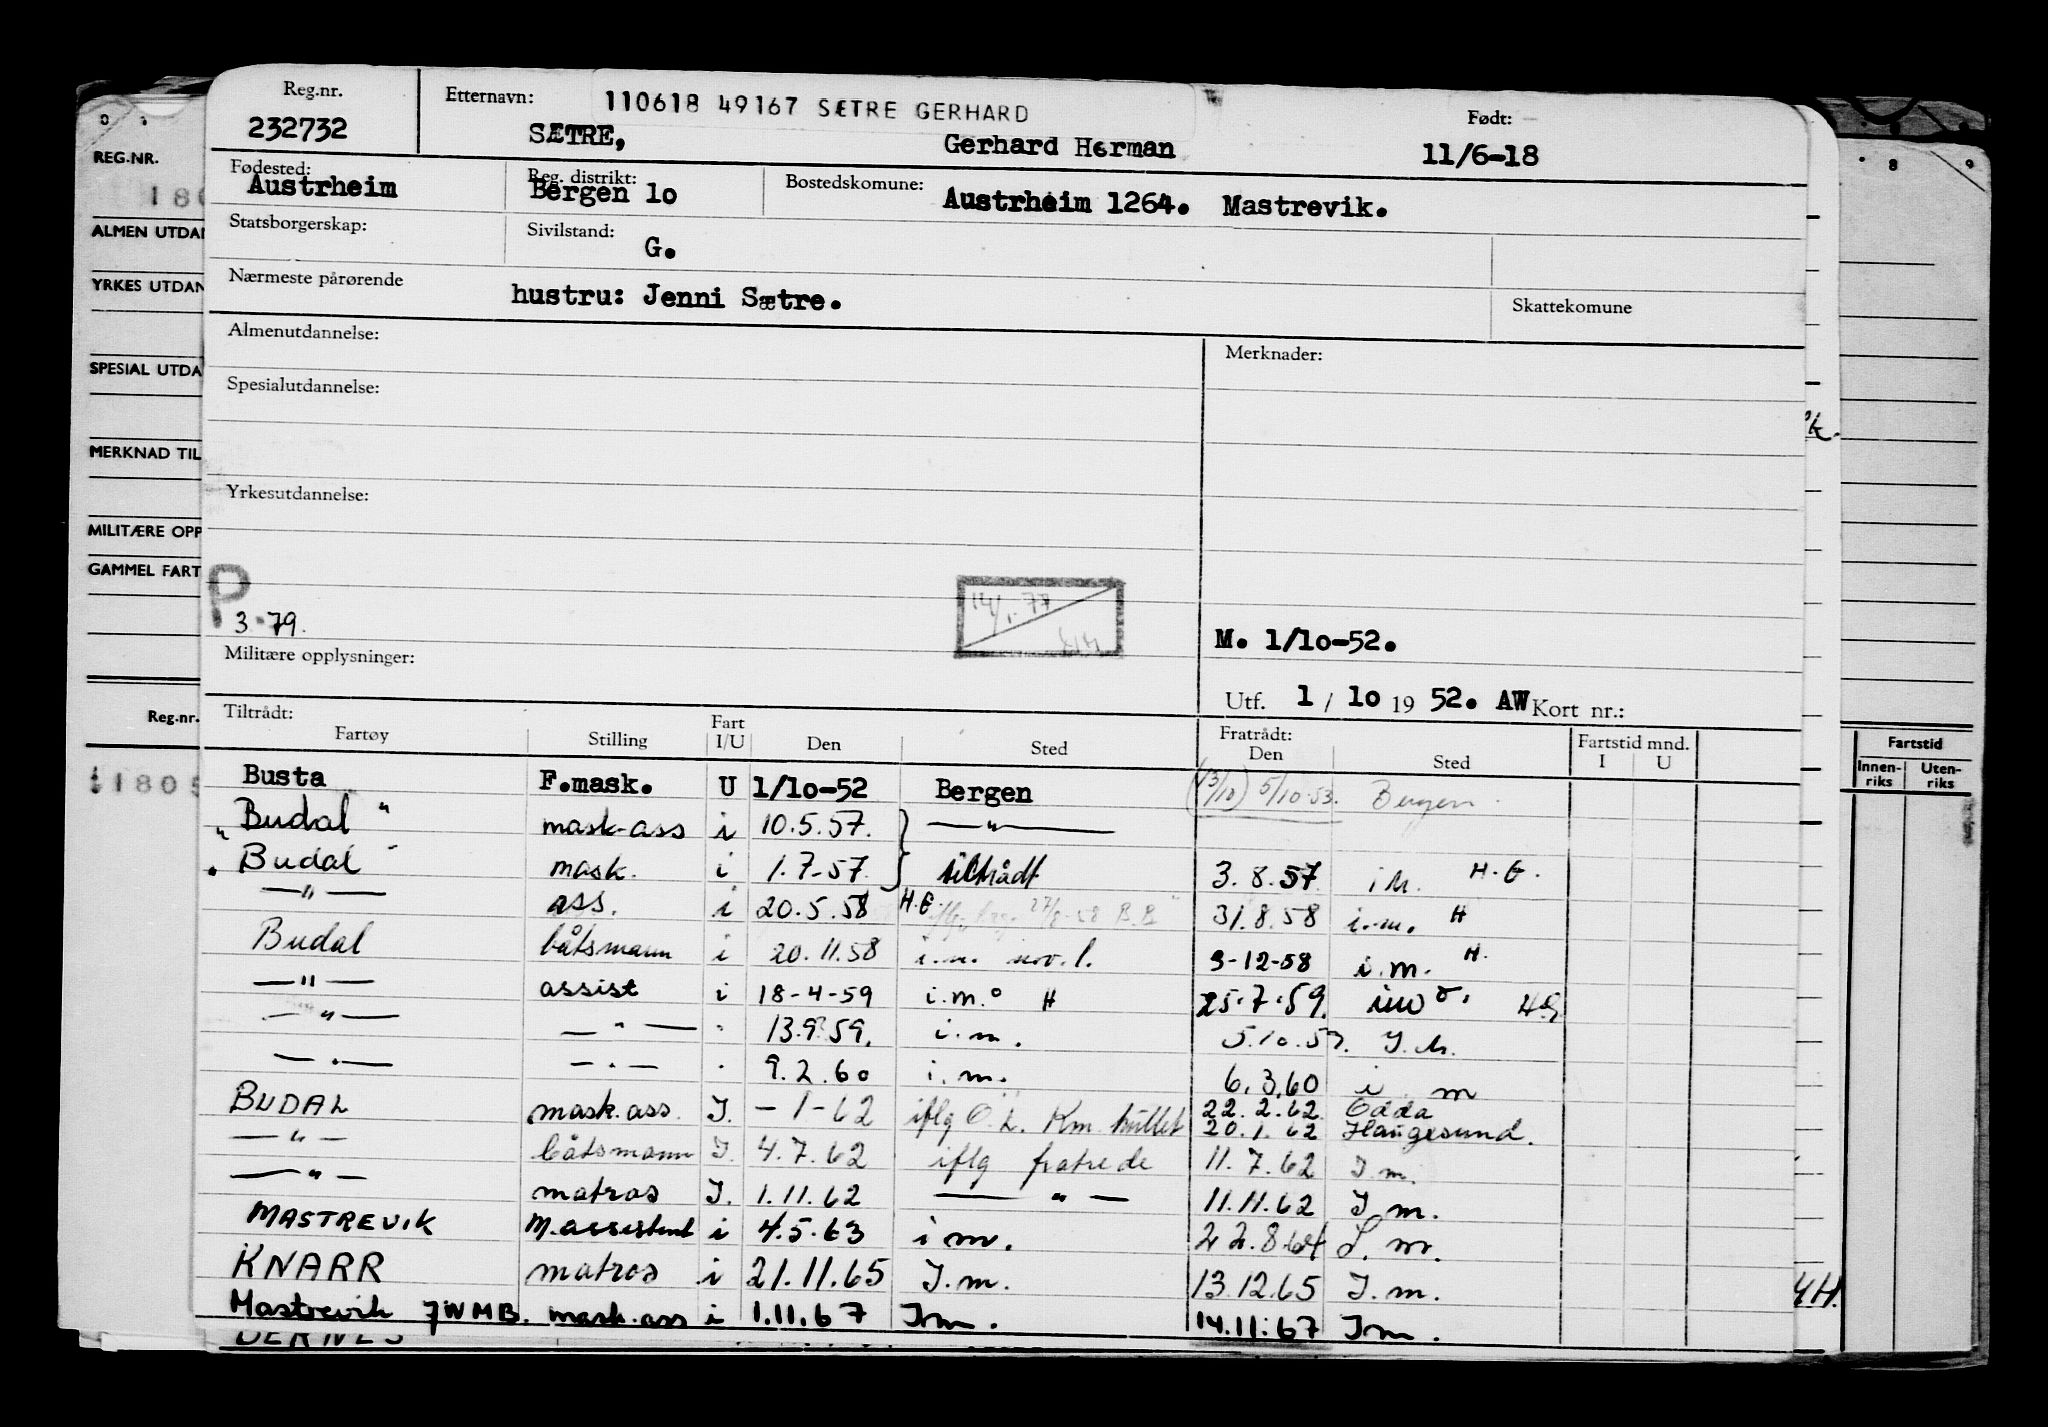 Reg.nr. Etternavn: 110618 49167 SÆTRE GERHARD Født:
232732 SÆTRE, Gerhard Herman 11/6-18
Fødested: Reg. distrikt: Bostedskomune:
Austrheim Bergen 1o Austrheim 1264. Mastrevik.
Statsborgerskap: Sivilstand: G.
Nærmeste pårørende hustru: Jenni Sætre. Skattekomune
Almenutdannelse: Merknader:
Spesialutdannelse:
Yrkesutdannelse:
P
3.79. 14/1.77
M. 1/1o-52.
Militære opplysninger:
Utf. 1 / 1o 19 52. AW Kort nr.:
Tiltrådt: Fratrådt:
Fartøy Stilling Fart I/U Den Sted Den Sted Fartstid mnd. I U
Busta F.mask. U 1/1o-52 Bergen (13/10) 5/10.53. Bergen.
"Budal" mask-ass i 10.5.57. —"—
"Budal" mask. i 1.7-57 tiltrådt 3.8.57 i m. H.E.
—"— ass. i 20.5.58 H.E. 27/8-58 B.B 31.8.58 i.m. H
Budal båtsmann i 20.11.58 i.m. nov.l. 3-12-58 i.m. H.
—"— assist i 18-4-59 i.m. H 25.7.59.
—"— —"— " 13.9.59. i.m. 5.10.59. I.m.
—"— —"— " 9.2.60 i.m. 6.3.60 i m
BUDAL mask.ass. I. -1-62 iflg O.L. Km. hullet 22.2.62 Odda
20.1.62 Haugesund.
—"— båtsmann I. 4.7.62 iflg fratrede 11.7.62 I.m.
—"— matros I. 1.11.62 —"— 11.11.62 I m.
MASTREVIK M.assistent i 4.5.63 i m. 22.8.64 I. m.
KNARR matros i 21.11.65 I.m. 13.12.65 I.m.
Mastrevik JWMB. mask.ass i 1.11.67 I m. 14.11.67 I m.
BERNES
REG.NR.
180
ALMEN UTDAN
YRKES UTDAN
SPESIAL UTDA
MERKNAD TIL
MILITÆRE OPP
GAMMEL FART
Reg.nr.
11805
Fartstid
Innen-riks Uten-riks